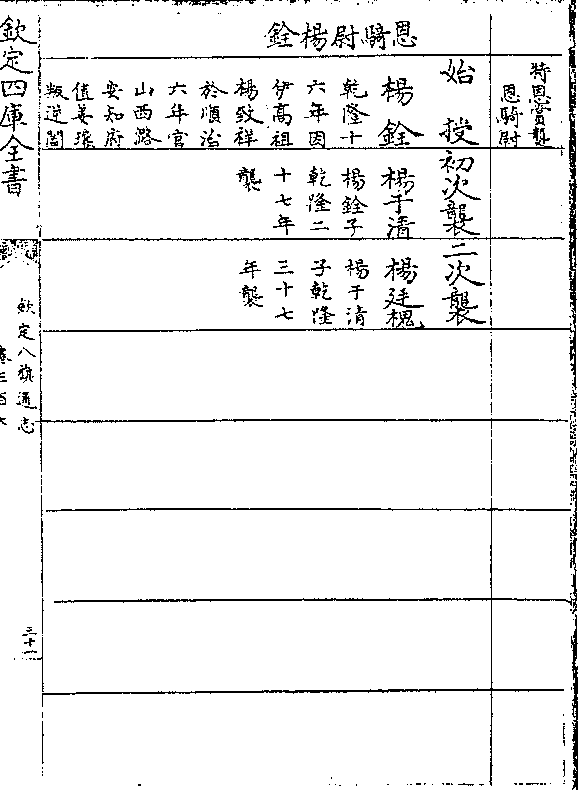 特恩賞襲
恩騎尉
恩騎尉楊銓
始授
楊銓
乾隆十
六年因
伊高祖
楊致祥
於順治
六年官
山西潞
安知府
值姜瓖
叛逆闔
初次襲
楊于清
楊銓子
乾隆二
十七年
襲
二次襲
楊廷槐
楊于清
子乾隆
三十七
年襲
欽定四庫全書
欽定八旗通志
三十一